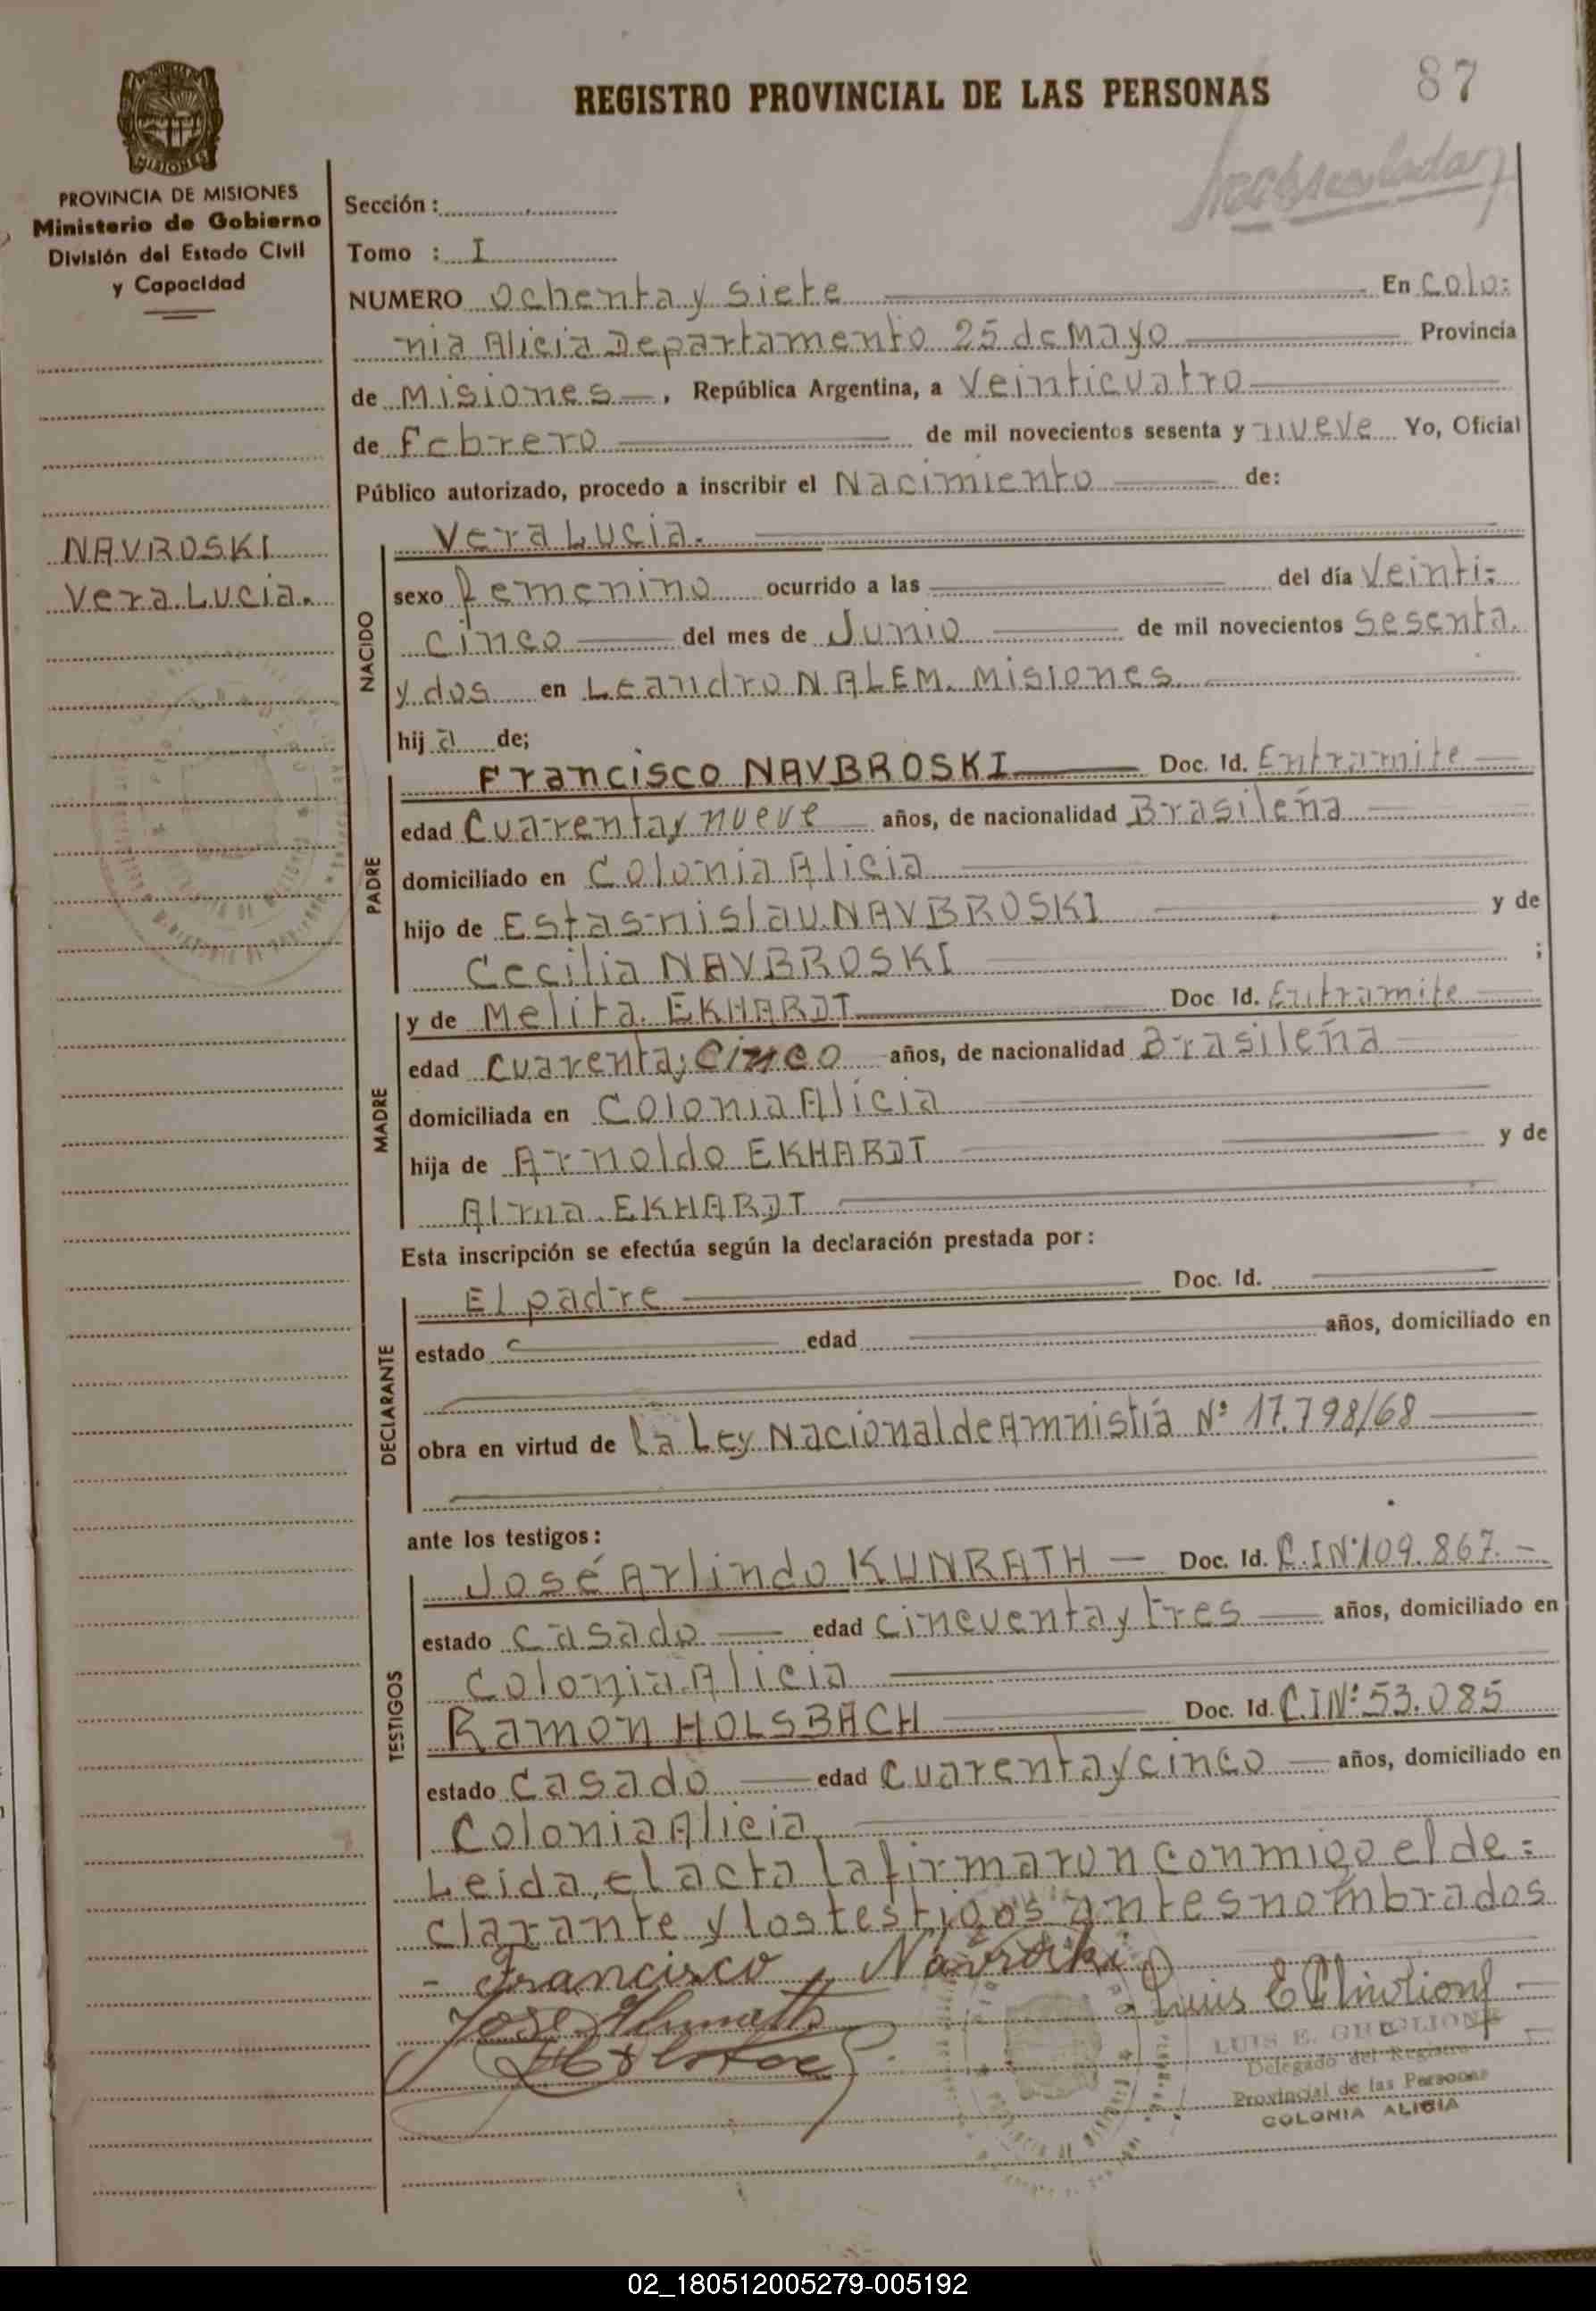 REGISTRO PROVINCIAL DE LAS PERSONAS
87
MISIONES
PROVINCIA DE MISIONES
Ministerio de Gobierno
División del Estado Civil
y Capacidad
NAVROSKI
Vera Lucia.
Sección :
Tomo : I
NUMERO Ochenta y siete En Colo=
nia Alicia Departamento 25 de Mayo Provincia
de Misiones , República Argentina, a Veinticuatro
de Febrero de mil novecientos sesenta y nueve Yo, Oficial
Público autorizado, procedo a inscribir el Nacimiento de:
NACIDO
Vera Lucia.
sexo femenino ocurrido a las del día Veinti=
cinco del mes de Junio de mil novecientos sesenta
y dos en Leandro N. ALEM. Misiones
hij a de;
PADRE
Francisco NAVBROSKI Doc. Id. En tramite
edad Cuarenta y nueve años, de nacionalidad Brasileña
domiciliado en Colonia Alicia
hijo de Estasnislau NAVBROSKI y de
Cecilia NAVBROSKI ;
MADRE
y de Melita EKHARDT Doc Id. En tramite
edad Cuarenta y cinco años, de nacionalidad Brasileña
domiciliada en Colonia Alicia
hija de Arnoldo EKHARDT y de
Alma EKHARDT
Esta inscripción se efectúa según la declaración prestada por :
DECLARANTE
El padre Doc. Id.
estado edad años, domiciliado en
obra en virtud de la Ley Nacional de Amnistía Nº 17.798/68
ante los testigos :
TESTIGOS
José Arlindo KUNRATH Doc. Id. C.I Nº 109.867.
estado casado edad cincuenta y tres años, domiciliado en
Colonia Alicia
Ramon HOLSBACH Doc. Id. C.I Nº 53.085
estado casado edad cuarenta y cinco años, domiciliado en
Colonia Alicia
Leida, el acta la firmaron conmigo el de=
clarante y los testigos antes nombrados
- Francisco Navroski
Luis E
LUIS E. GHIGLIONE
Delegado del Registro
Provincial de las Personas
COLONIA ALICIA
02_180512005279-005192